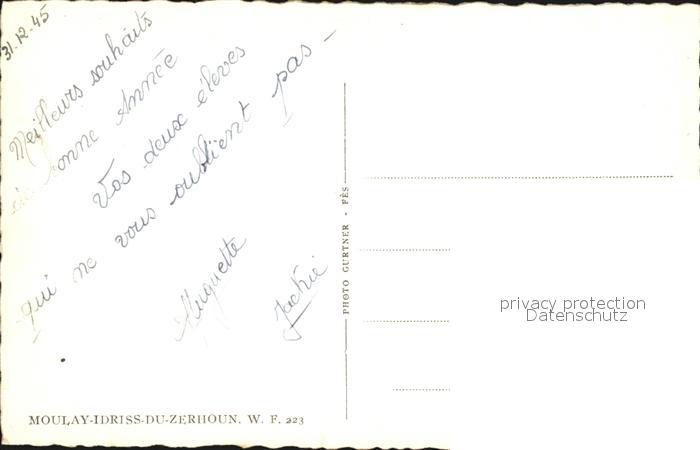 31.12.45
Meilleurs souhaits
de bonne Année
Vos deux élèves
qui ne vous oublient pas -
Huguette
Jackie
MOULAY-IDRISS-DU-ZERHOUN. W. F. 223
PHOTO GURTNER - FÈS
privacy protection
Datenschutz